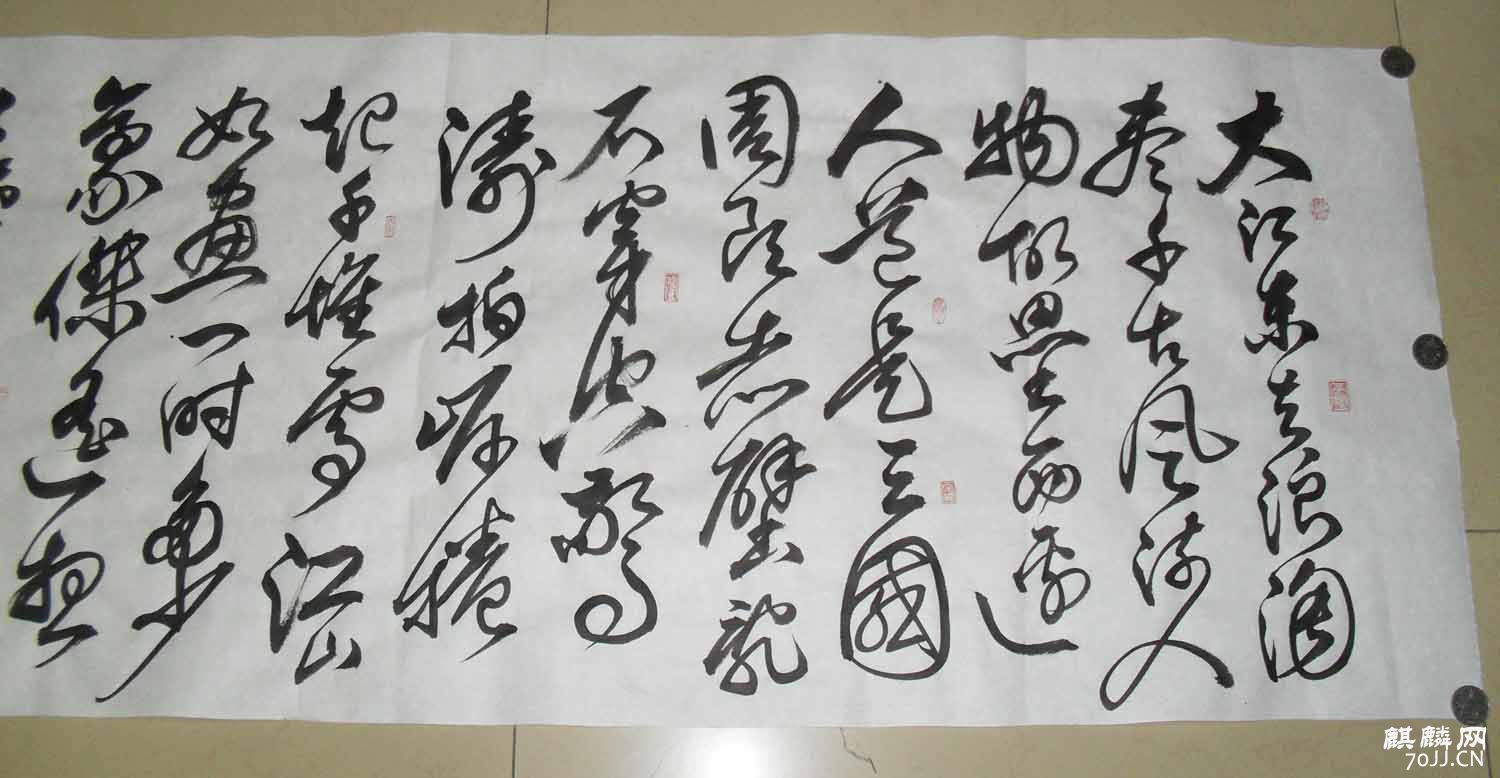 大江东去浪淘
尽千古风流人
物故垒西邊
人道是三國
周郎赤壁乱
石穿空驚
濤拍岸捲
起千堆雪江山
如畫一时多少
豪傑遥想
麒麟网
70JJ.CN